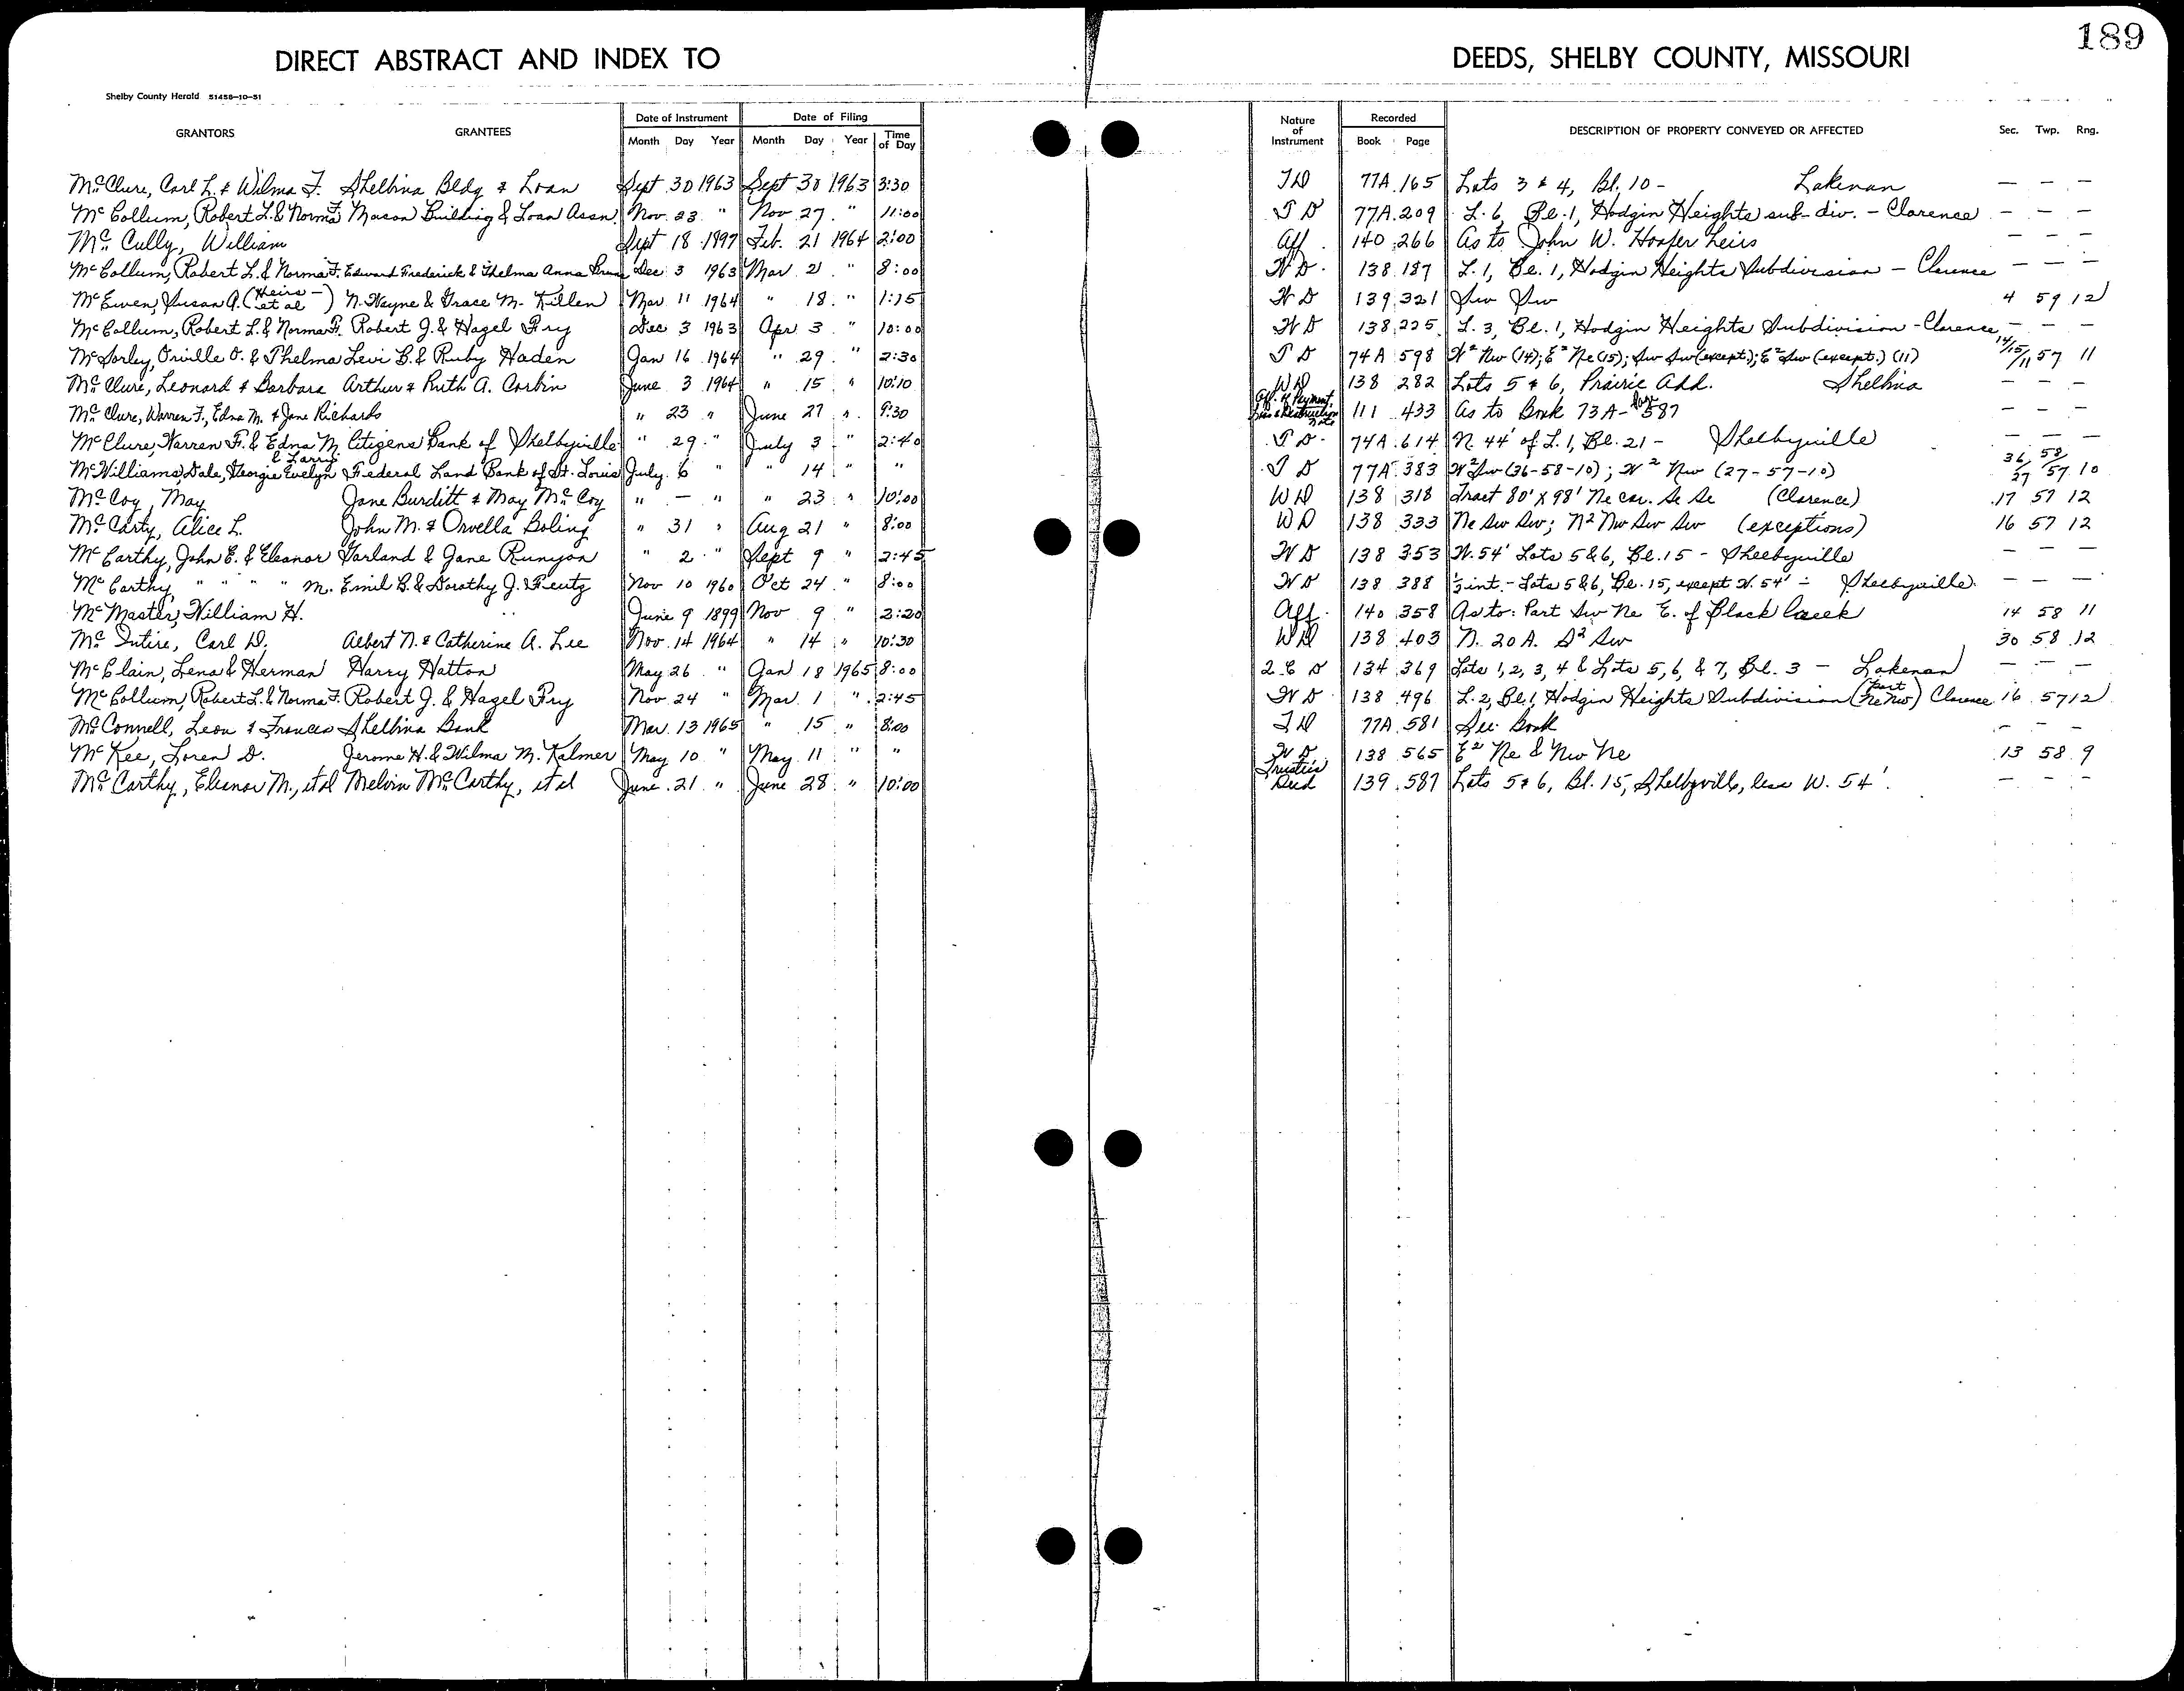 189
DIRECT ABSTRACT AND INDEX TO DEEDS, SHELBY COUNTY, MISSOURI
Shelby County Herald 51458-10-51
GRANTORS GRANTEES Date of Instrument Month Day Year Date of Filing Month Day Year Time of Day Nature of Instrument Recorded Book Page DESCRIPTION OF PROPERTY CONVEYED OR AFFECTED Sec. Twp. Rng.
McClure, Carl L. & Wilma F. Shelbina Bldg & Loan Sept 30 1963 Sept 30 1963 3:30 TD 77A 165 Lots 3 & 4, Bl. 10 - Lakenan — — —
McCollum, Robert L. & Norma F. Macon Building & Loan Assn. Nov. 23 " Nov 27 " 11:00 T D 77A 209 L. 6, Bl. 1, Hodgin Heights sub-div. - Clarence — — —
McCully, William Sept 18 1897 Feb. 21 1964 2:00 Aff. 140 266 As to John W. Hooper heirs — — —
McCollum, Robert L. & Norma F. Edward Frederick & Thelma Anna Dec 3 1963 Mar 21 " 8:00 W D. 138 187 L. 1, Bl. 1, Hodgin Heights Subdivision - Clarence — — —
McEwen, Susan A. (heirs - et al) N. Wayne & Grace M. Killen Mar 11 1964 " 18 " 1:15 W D 139 321 Sw Sw 4 59 12
McCollum, Robert L. & Norma F. Robert J. & Hazel Fry Dec 3 1963 Apr 3 " 10:00 W D 138 225 L. 3, Bl. 1, Hodgin Heights Subdivision - Clarence — — —
McSorley, Orville O. & Thelma Levi B. & Ruby Haden Jan 16 1964 " 29 " 2:30 T D 74A 598 W² Nw (14); E² Ne (15); Sw Sw (except.); E² Sw (except.) (11) 14/15/11 57 11
McClure, Leonard & Barbara Arthur & Ruth A. Corbin June 3 1964 " 15 " 10:10 WD 138 282 Lots 5 & 6, Prairie Add. Shelbina — — —
McClure, Warren F., Edna M. & Jane Richards " 23 " June 27 " 9:30 Aff. of Payment, Loss & Destruction Note 111 433 As to Book 73A - Page 587 — — —
McClure, Warren F. & Edna M. Citizens Bank of Shelbyville " 29 " July 3 " 2:40 T D. 74A 614 N. 44' of L. 1, Bl. 21 - Shelbyville — — —
McWilliams, Dale, Georgia Evelyn & Larry Federal Land Bank of St. Louis July 6 " " 14 " " T D 77A 383 W² Sw (36-58-10); W² Nw (27-57-10) 36/27 58/57 10
McCoy, May Jane Burditt & May McCoy " — " " 23 " 10:00 WD 138 318 Tract 80' x 98' Ne cor. Se Se (Clarence) 17 57 12
McCarty, Alice L. John M. & Orvella Boling " 31 " Aug 21 " 8:00 WD 138 333 Ne Sw Sw; N² Nw Sw Sw (exceptions) 16 57 12
McCarthy, John E. & Eleanor Garland & Jane Runyon " 2 " Sept 9 " 2:45 W D 138 353 W. 54' Lots 5 & 6, Bl. 15 - Shelbyville — — —
McCarthy, " " " " M. Emil B. & Dorothy J. Feutz Nov 10 1960 Oct 24 " 8:00 W D 138 388 ½ int. - Lots 5 & 6, Bl. 15, except W. 54' - Shelbyville — — —
McMaster, William H. June 9 1899 Nov 9 " 2:20 Aff. 140 358 As to: Part Sw Ne E. of Black Creek 14 58 11
McIntire, Carl D. Albert N. & Catherine A. Lee Nov. 14 1964 " 14 " 10:30 WD 138 403 N. 20 A. S² Sw 30 58 12
McClain, Lena & Herman Harry Hatton May 26 " Jan 18 1965 8:00 Q C D 134 369 Lots 1, 2, 3, 4 & Lots 5, 6, & 7, Bl. 3 - Lakenan — — —
McCollum, Robert L. & Norma F. Robert J. & Hazel Fry Nov 24 " Mar. 1 " 2:45 W D 138 496 L. 2, Bl. 1, Hodgin Heights Subdivision (Part Ne Nw) Clarence 16 57 12
McConnell, Leon & Frances Shelbina Bank Mar. 13 1965 " 15 " 8:00 TD 77A 581 See Book — — —
McKee, Loren D. Jerome H. & Wilma M. Kalmer May 10 " May 11 " " W D 138 565 E² Ne & Nw Ne 13 58 9
McCarthy, Eleanor M., et al Melvin McCarthy, et al June 21 " June 28 " 10:00 Trustee's Deed 139 587 Lots 5 & 6, Bl. 15, Shelbyville, less W. 54'. — — —